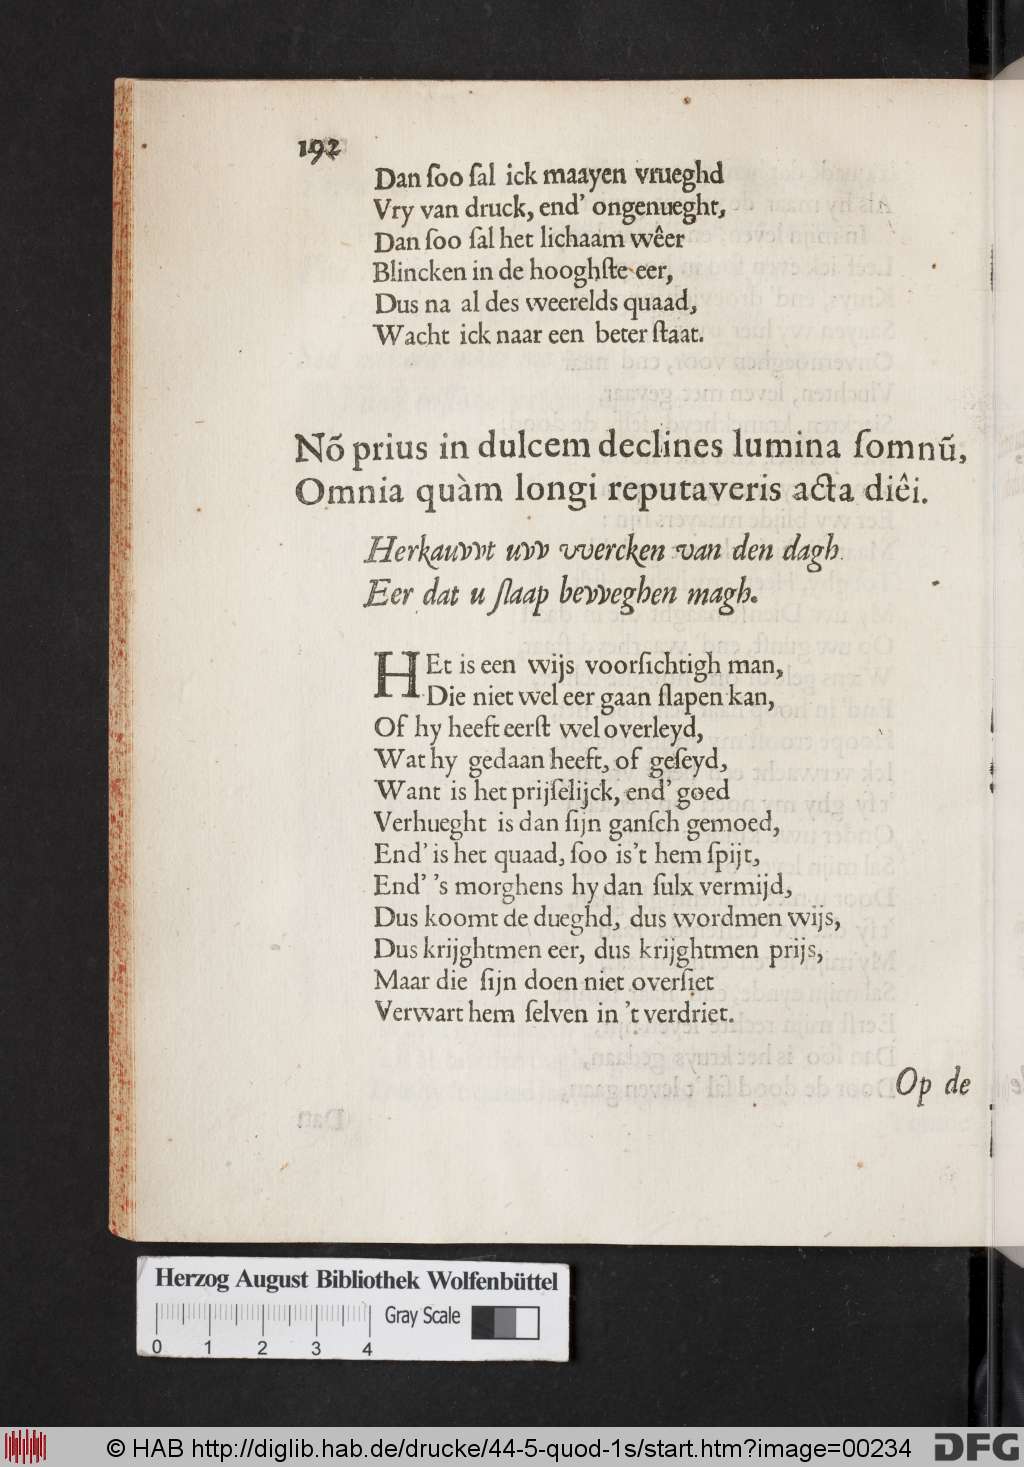 192
Dan ſoo ſal ick maayen vrueghd
Vry van druck, end' ongenueght,
Dan ſoo ſal het lichaam wêer
Blincken in de hooghſte eer,
Dus na al des weerelds quaad,
Wacht ick naar een beter ſtaat.
Nõ prius in dulcem declines lumina ſomnũ,
Omnia quàm longi reputaveris acta diêi.
Herkauvvt uvv vvercken van den dagh
Eer dat u ſlaap bevveghen magh.
HEt is een wijs voorſichtigh man,
Die niet wel eer gaan ſlapen kan,
Of hy heeft eerſt wel overleyd,
Wat hy gedaan heeft, of geſeyd,
Want is het prijſelijck, end' goed
Verhueght is dan ſijn ganſch gemoed,
End' is het quaad, ſoo is't hem ſpijt,
End' 's morghens hy dan ſulx vermijd,
Dus koomt de dueghd, dus wordmen wijs,
Dus krijghtmen eer, dus krijghtmen prijs,
Maar die ſijn doen niet overſiet
Verwart hem ſelven in 't verdriet.
Op de
Herzog August Bibliothek Wolfenbüttel
Gray Scale
0 1 2 3 4
© HAB http://diglib.hab.de/drucke/44-5-quod-1s/start.htm?image=00234
DFG